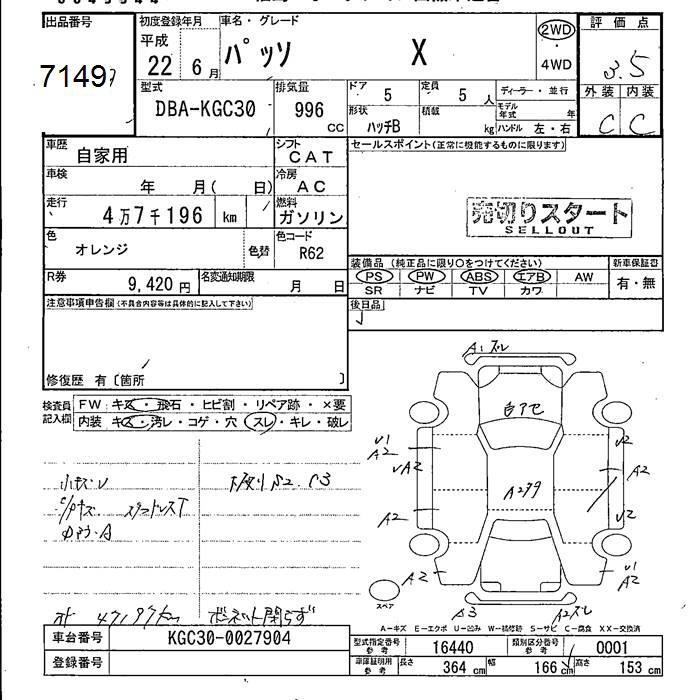 出品番号
7149
初度登録年月
平成
22 6 月
車名・グレード
パッソ X
2WD
・
4WD
評価点
3.5
型式
DBA-KGC30
排気量
996
CC
ドア 5
定員 5 人
ディーラー・並行
形状 ハッチB
積載 kg
モデル年式 年
ハンドル 左・右
外装 内装
C C
車歴 自家用
シフト CAT
セールスポイント(正常に機能するものに限ります)
車検 年 月( 日)
冷房 AC
走行 4万7千196 km
燃料 ガソリン
売切りスタート
SELLOUT
色 オレンジ
色替
色コード R62
装備品(純正品に限り○をつけてください)
新車保証書
PS PW ABS エアB AW
SR ナビ TV カワ
有・無
R券 9,420 円
名変通知期限 月 日
後日品
注意事項申告欄(不具合内容等は具体的に記入して下さい)
修復歴 有〔箇所 〕
検査員
記入欄
FW:キズ・飛石・ヒビ割・リペア跡・×要
内装 キズ・汚レ・コゲ・穴・スレ・キレ・破レ
A:ズレ
A2
A2
A2
A2
A2
A3
スペア
ボンネット閉らず
A=キズ E=エクボ U=凹み W=補修跡 S=サビ C=腐食 XX=交換済
車台番号 KGC30-0027904
型式指定番号
参考
16440
類別区分番号
参考
0001
登録番号
車庫証明用
参考
長さ 364 cm
幅 166 cm
高さ 153 cm